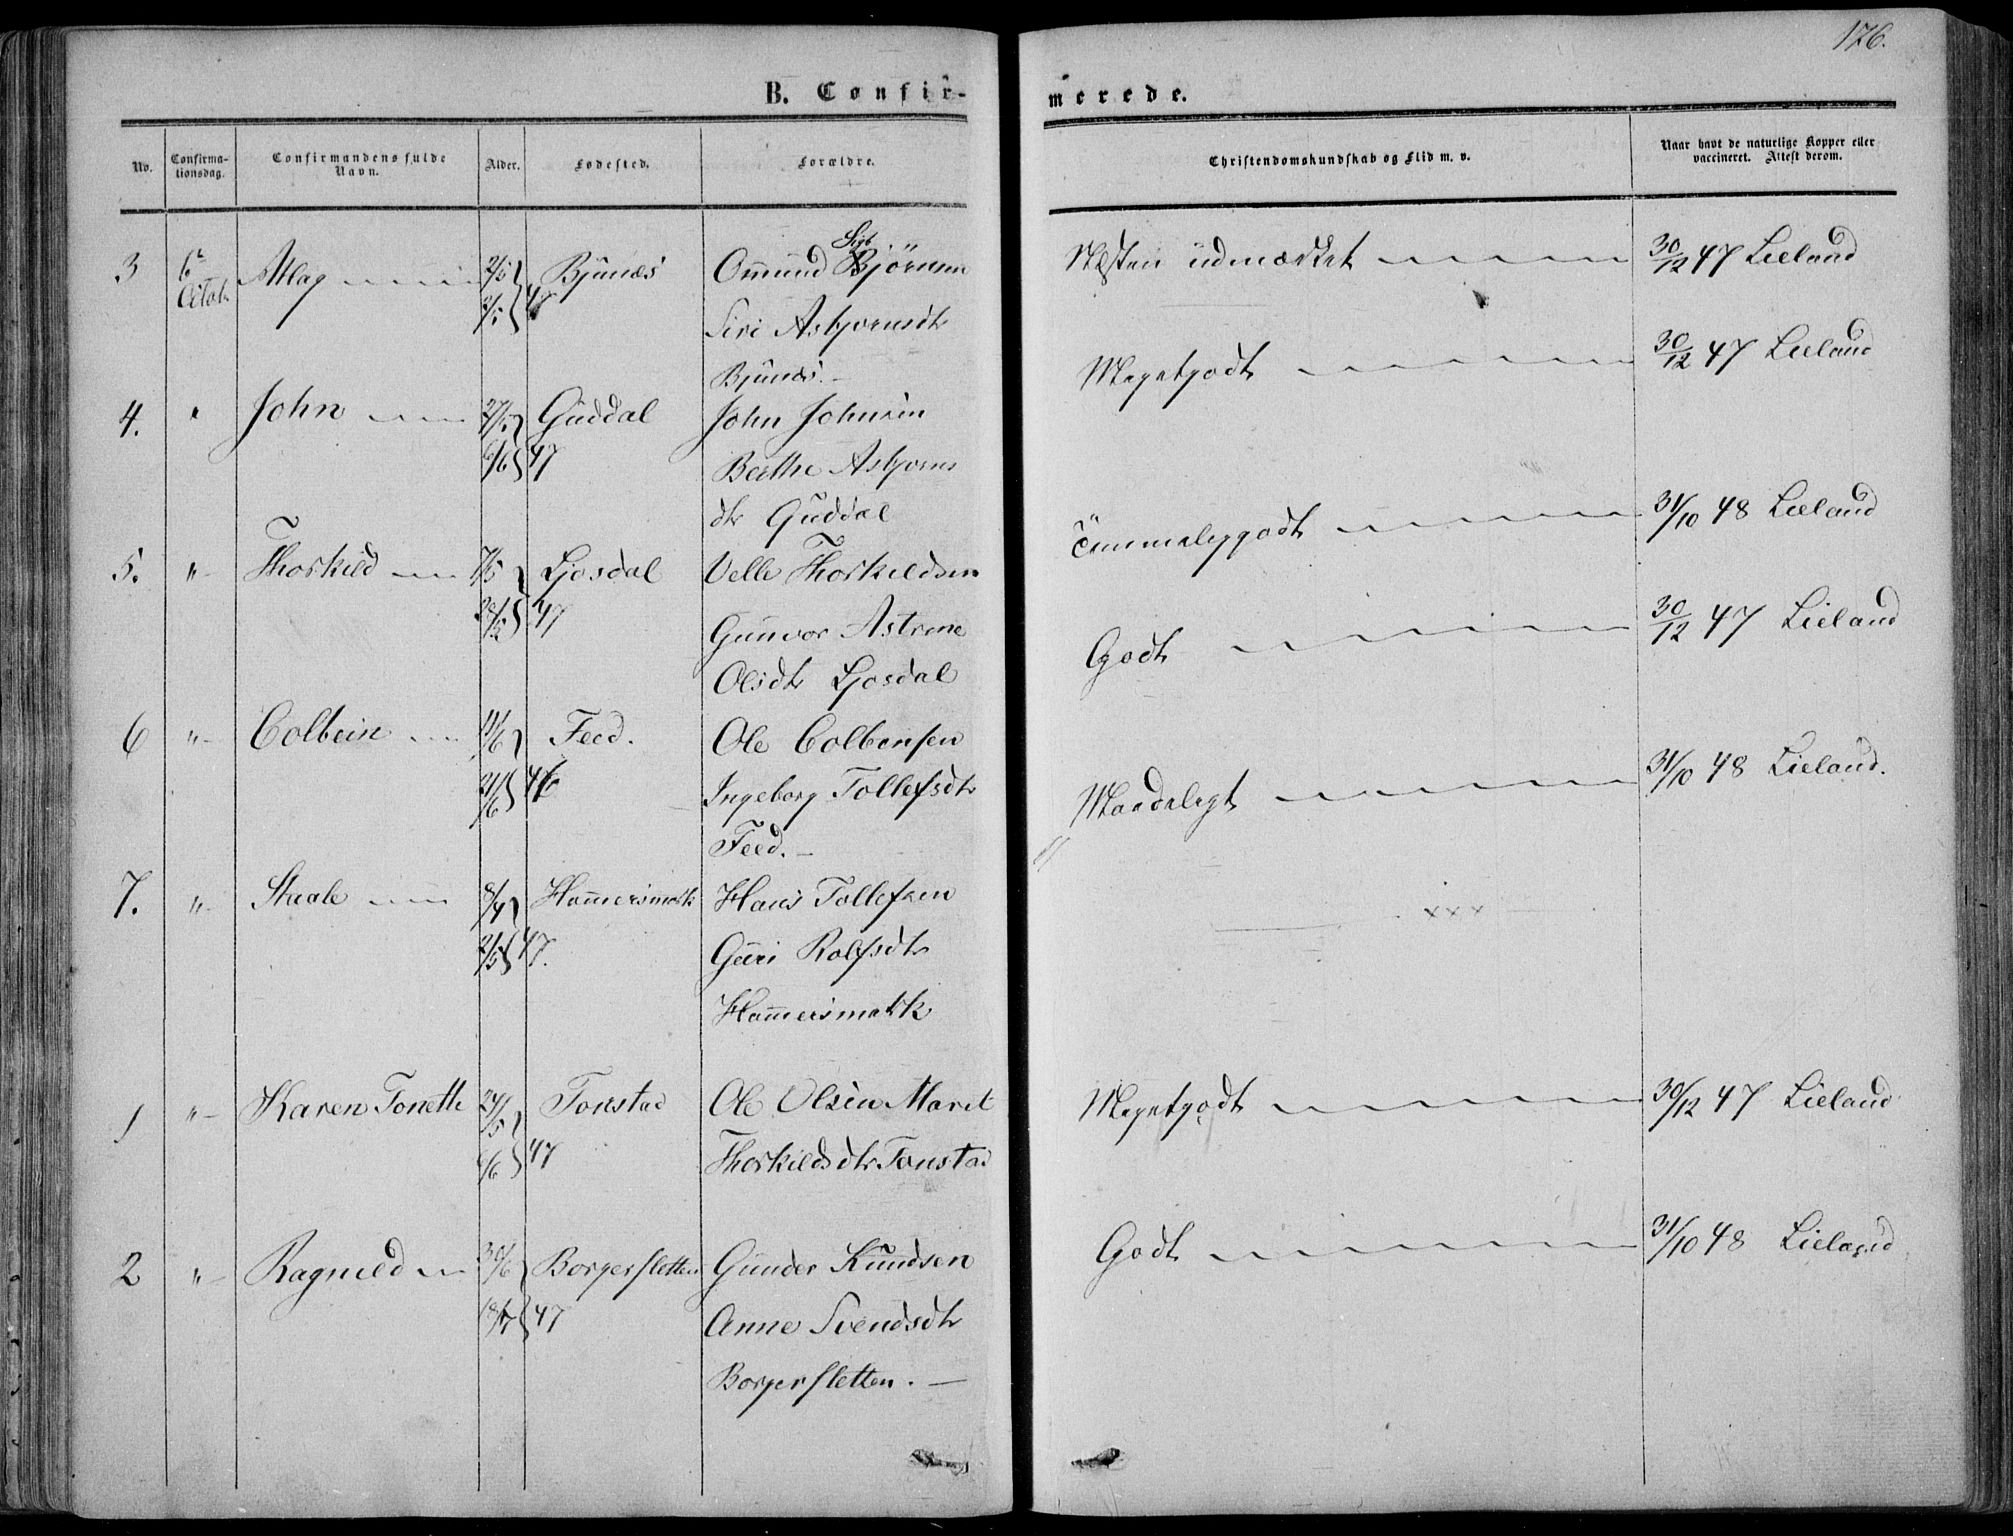 176.
B. Confir-
merede.
No.
Confirma-
tionsdag.
Confirmandens fulde
Navn.
Alder.
Fødested.
Forældre.
Christendomskundskab og Flid m. v.
Naar havt de naturlige Kopper eller
vaccineret. Attest derom.
3 6te Aslag 2/5 Bjunæs Omund Sigbjörnsen Næsten udmærket 30/12 47 Lieland
Octob. 2/5 47 Siri Asbjornsdtr
Bjunæs.
4. " John 27/5 Guddal John Johnsen Megetgodt 30/12 47 Lieland
6/6 47 Berthe Asbjorns
dtr Guddal
5. " Thorkild 7/5 Ljosdal Velle Thorkildsen Temmeliggodt 31/10 48 Lieland
47 Gunvor Astrine
Olsdtr Ljosdal
6 " Colbein 11/6 Feed. Ole Colbensen Godt 30/12 47 Lieland
21/6 46 Ingeborg Tollefsdtr
Feed.
7. " Staale 8/4 Hamersmark Hans Tollefsen Maadelegt 31/10 48 Lieland.
2/5 47. Guri Rolfsdtr
Hamersmark
xxx
1 " Karen Tonette 24/5 Tonstad Ole Olsen Maret Megetgodt 30/12 47 Lieland
6/6 47 Thorkildsdtr Tonstad
2 " Ragnild 30/6 Borgersletten Gunder Knudsen Godt 31/10 48 Lieland
18/7 47 Anne Svendsdtr
Borgersletten.